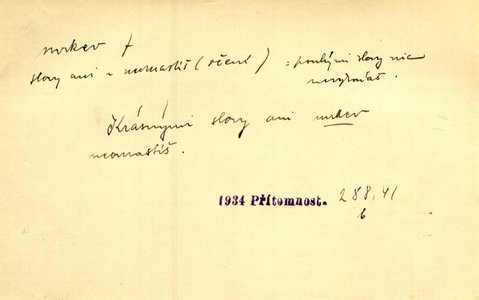 mrkev f
slovy ani ~ neomastíš (rčení) : pouhými slovy nic
nevykonáš.
Krásnými slovy ani mrkev
neomastíš.
1934 Přítomnost. 288,41
b